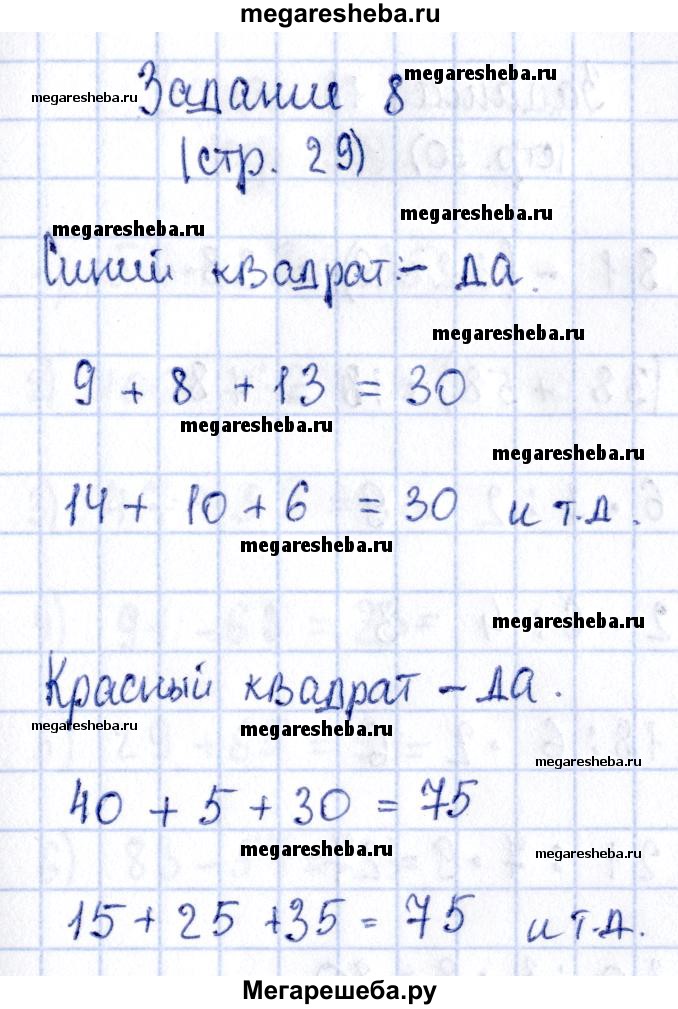 megaresheba.ru
Задание 8
megaresheba.ru
megaresheba.ru
(стр. 29)
megaresheba.ru
megaresheba.ru
Синий квадрат:- ДА.
megaresheba.ru
9 + 8 + 13 = 30
megaresheba.ru
megaresheba.ru
14 + 10 + 6 = 30 и т.д.
megaresheba.ru
megaresheba.ru
Красный квадрат - ДА.
megaresheba.ru
megaresheba.ru
megaresheba.ru
40 + 5 + 30 = 75
megaresheba.ru
megaresheba.ru
15 + 25 + 35 = 75 и т.д.
Мегарешеба.ру